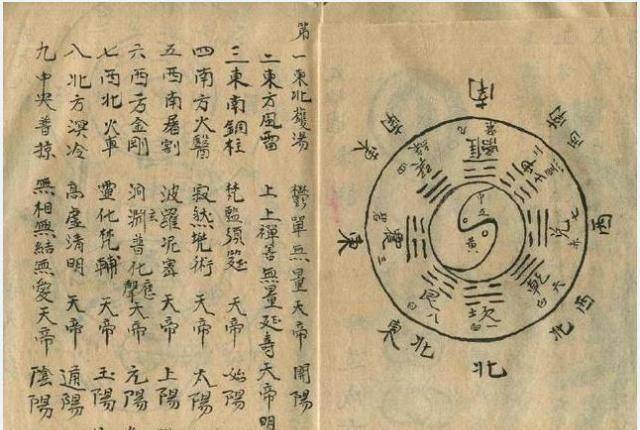 第一東北鑊湯 鬱單無量天帝 開陽
二東方風雷 上上禪善無量延壽天帝明
三東南銅柱 梵監須延 天帝 始陽
四南方火醫 寂然兜術 天帝 太陽
五西南屠割 波羅尼蜜 天帝 上陽
六西方金剛 洞淵普化應聲天帝 元陽
七西北火車 靈化梵輔 天帝 玉陽
八北方溟冷 高虛清明 天帝 道陽
九中央普掠 無相無結無愛天帝 陰陽
南
西南
西
西北
北
東北
東
東南
離 九
坤 二
兌 七赤
乾 六白
坎 一白
艮 八白
震 三
四
中五黃